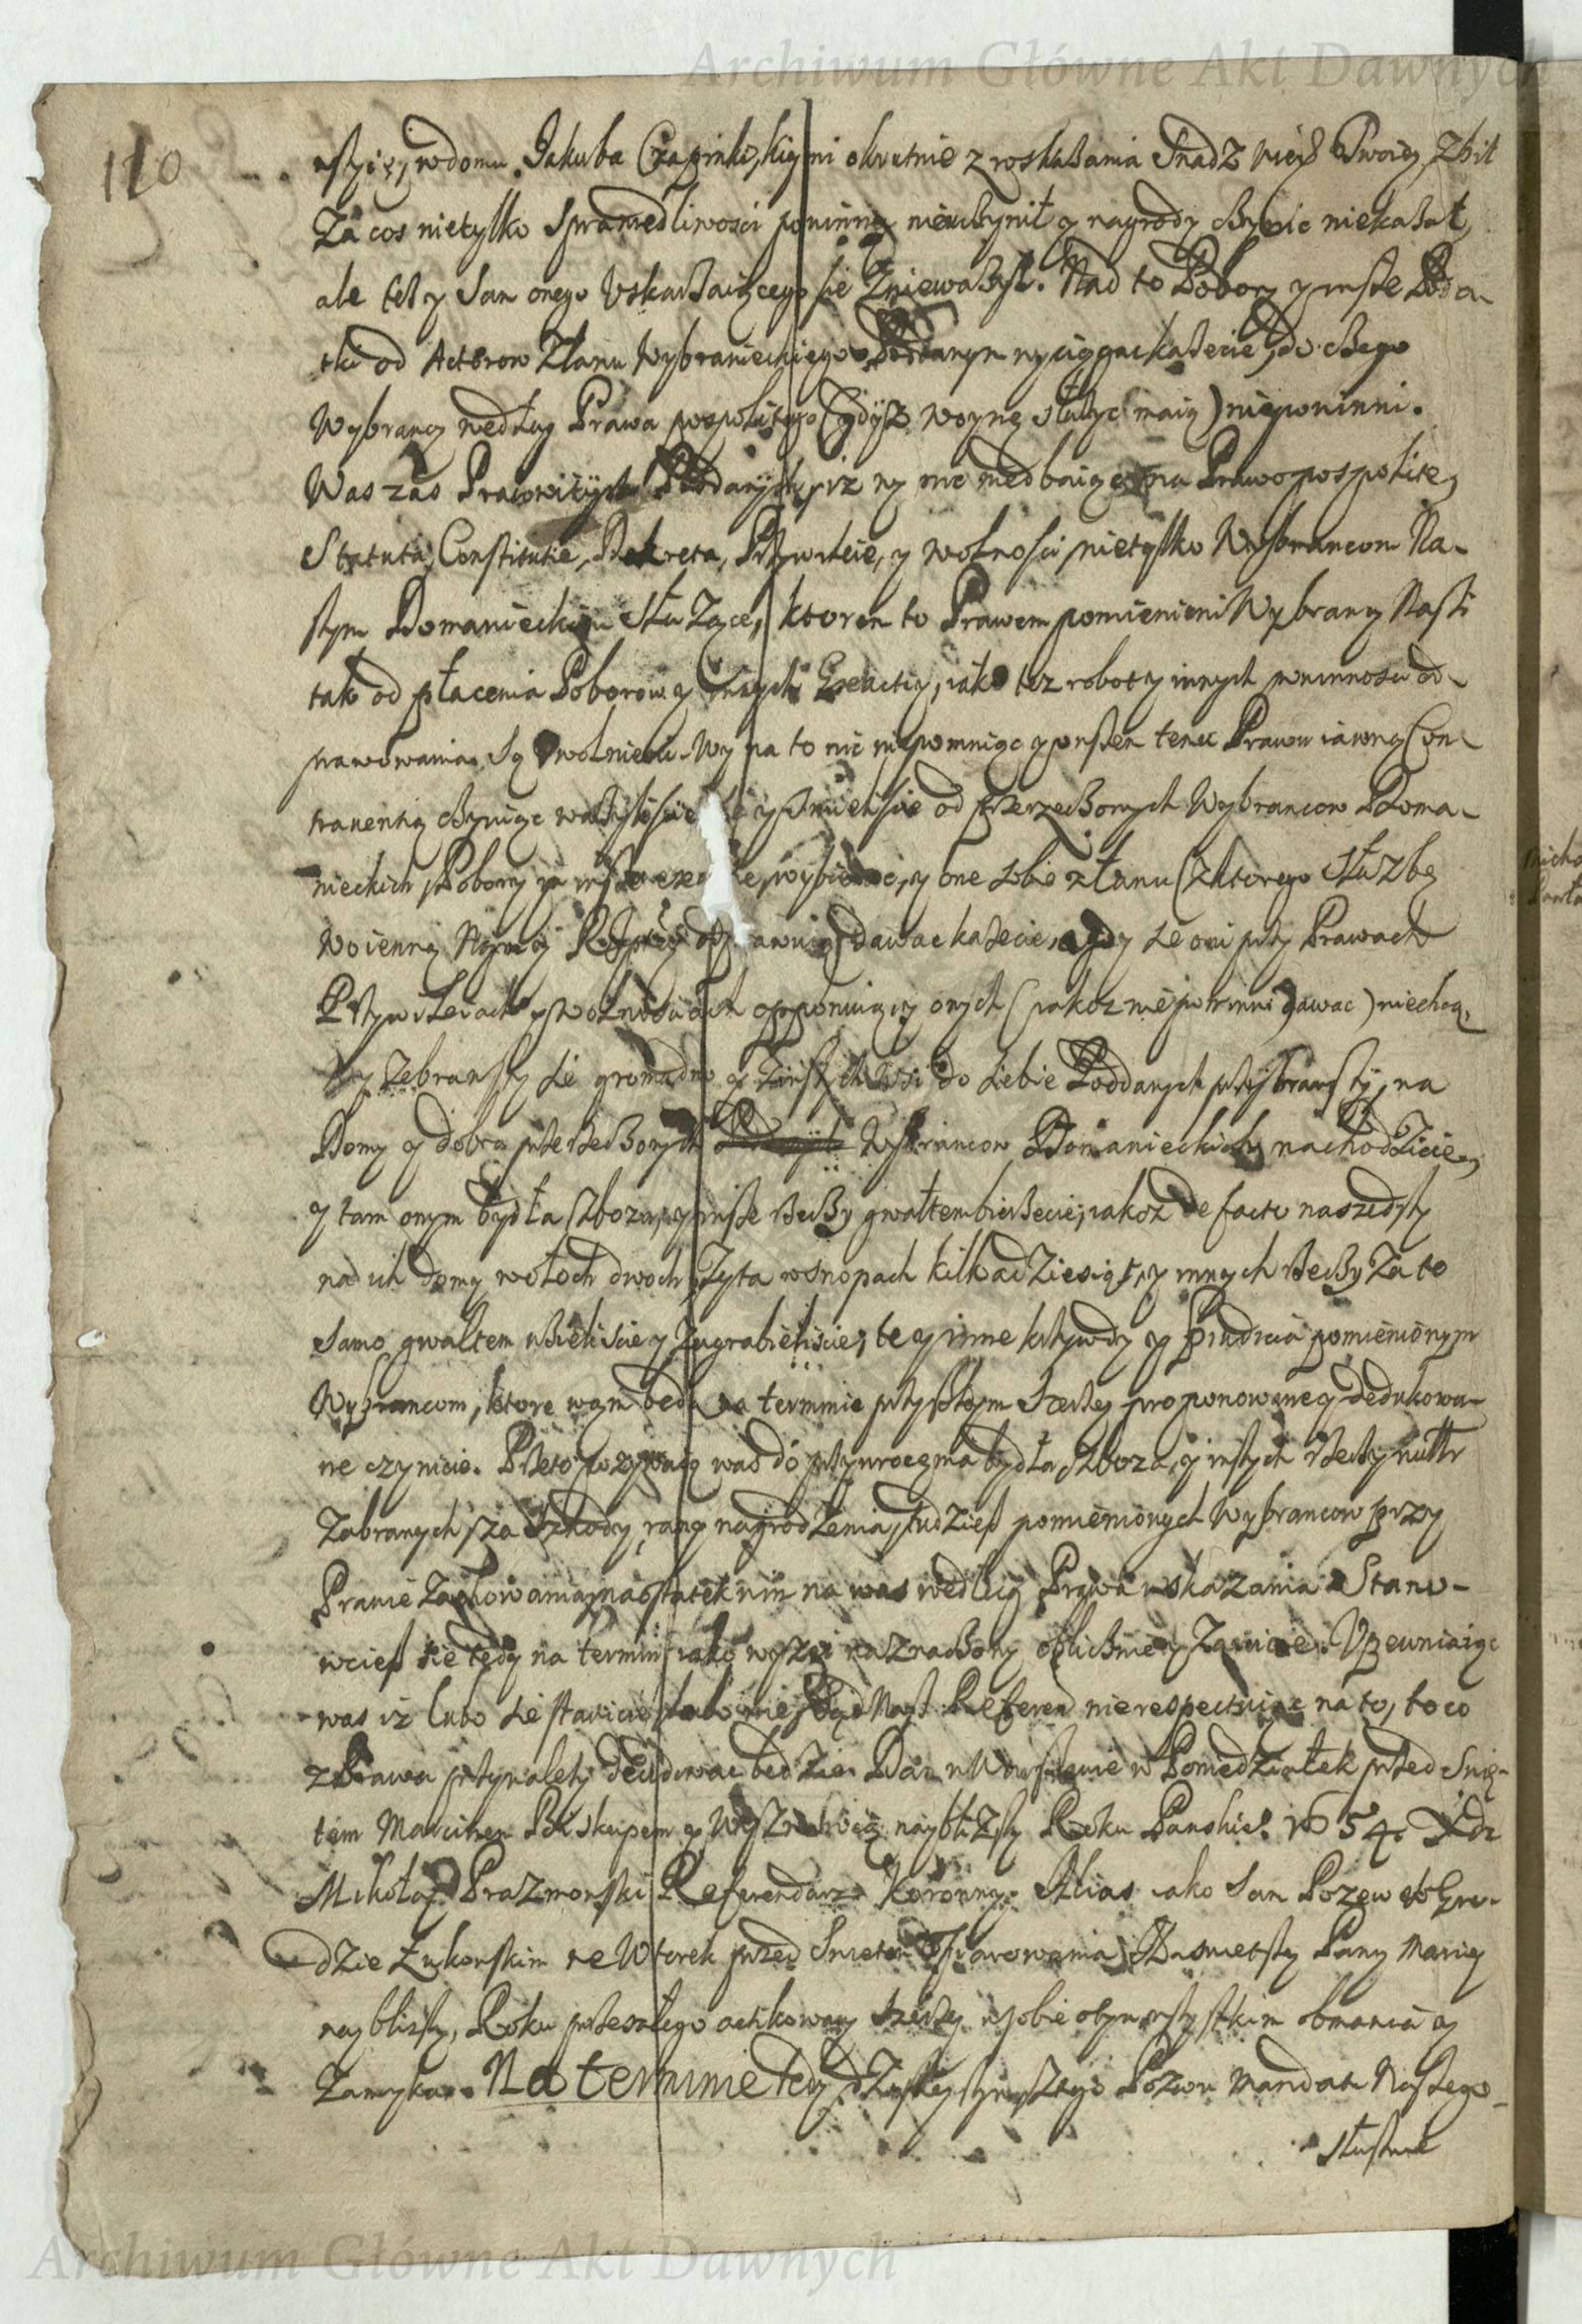 Archiwum Główne Akt Dawnych
110
w domu Jakuba kijmi okrutnie z roskazania snadz Zbił
Za cos nietylko sprawiedliwosci powinney nieuczynił y nagrody czynic niekazał,
ale tez y sam onego Uskarzaiącego sie Zniewazył. Nad to Pobory y insze Poda-
tki od Actorow Złanu Wybranieckiego Poddanym wyciągac kazecie, do czego
Wybrancy według Prawa pospolitego (gdysz woynę słuzyc maią) niepowinni.
Was zas Pracowitych Poddanych, iz wy nic niedbaiąc na Prawo pospolite,
Statuta, Constitutie, Dekreta, Przywileie, y wolnosci nietylko Wybrancom Na-
szym Domanieckim słuZące, ktorem to Prawem pomienieni Wybrancy Naszi
tak od płacenia Poborow y inszych Exactiy, iako tez roboty innych powinnosci od-
prawowania są wolnieni. Wy na to nic niepomniąc y owszem temu Prawu iawną Con-
trauentią czyniąc wazyliscie się y smieliscie od przerzeczonych Wybrancow Doma-
nieckich Pobory y insze wybierac, y one sobie złanu (z ktorego słuzbę
Woienną odprawuią) dawac kazecie, a gdy sie oni przy Prawach
Przywileiach y wolnosciach opponuiący onych (iakoz niepowinni dawac) niechcą,
Wy zebrawszy sie gromadno y Zinszych Wsi do siebie Poddanych przybrawszy, na
Domy y dobra przerzeczonych Wybrancow Domanieckich nachodzicie,
y tam onym bydła zboza, y insze rzeczy gwałtem bierzecie, iakoz de facto naszedszy
na ich domy wołoch dwoch, Zyta w snopach kilkadziesiąt, y innych rzeczy Za to
samo gwałtem wzieliscie y Zagrabieliscie; te y inne krzywdy y pomienionym
Wybrancom, ktore wam będą na terminie przyszłym szerzey proponowane y dedukowa-
ne czynicie. Przeto pozywaią was do przywrocenia bydła zboza, y inszych rzeczy
Zabranych, za szkody, rany nagrodzenia, tudziesz pomienionych Wybrancow przy
Prawie Zachowania, naostatek win na was według Prawa wskazania. Stano-
wciesz sie tedy na termin iako wyzey naznaczony, oblicznie y Zawicie. Upewniaiąc
was iz lubo sie stawicie, lubo nie, Sąd Nasz Referend nierespectuiąc na to, to co
z Prawa przynalezy decidowac będzie. Dan w Warszawie w Poniedziałek przed Swię-
tem Marcinem Biskupem y Wyznawcą naybliszy Roku Panskieo. 1654. Xdz
Mikołay Prazmowski Referendarz Koronny. Alias iako sam Pozew w Gro-
dzie Łukowskim we Wtorek przed Swietem Ofiarowania Naswietszy Panny Mariey
naybliszy, Roku przeszłego actikowany szerzey w sobie otym wszystkim obmawia y
Zamyka. Na terminie tedy dzisieyszym ztego Pozwu Mandatu Naszego
słusznie
Archiwum Główne Akt Dawnych